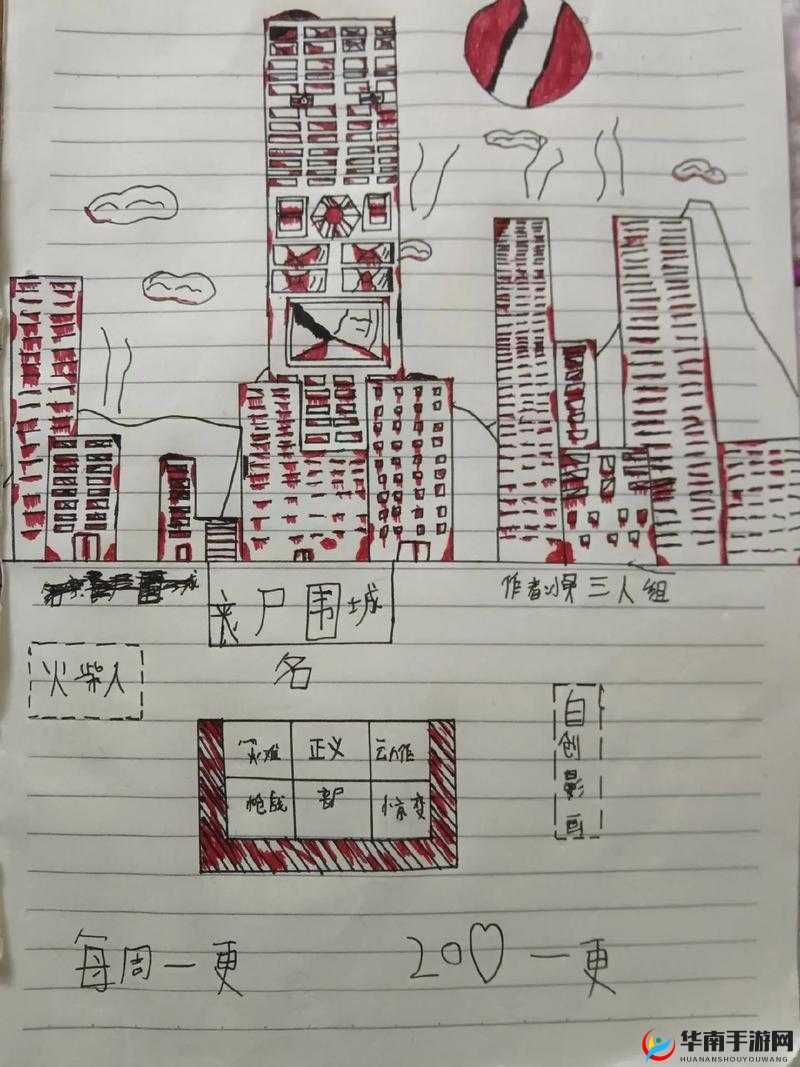 丧尸围城
作者 三人组
火柴人
名
灾难 正义 动作
枪战 丧尸 惊变
自创影画
每周一更
20♡一更
华南手游网
HUANANSHOUYOUWANG